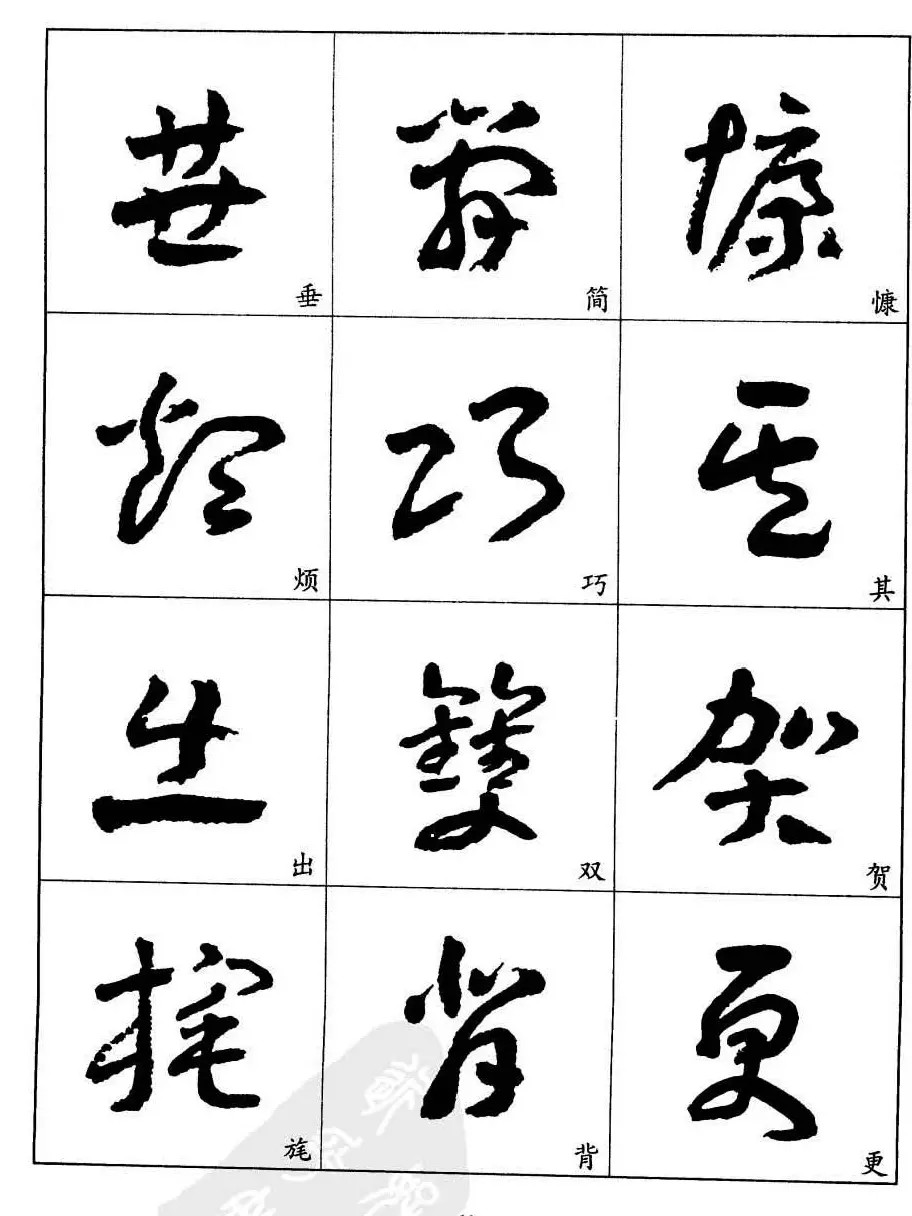 垂 简 慷
烦 巧 其
出 双 贺
旄 背 更